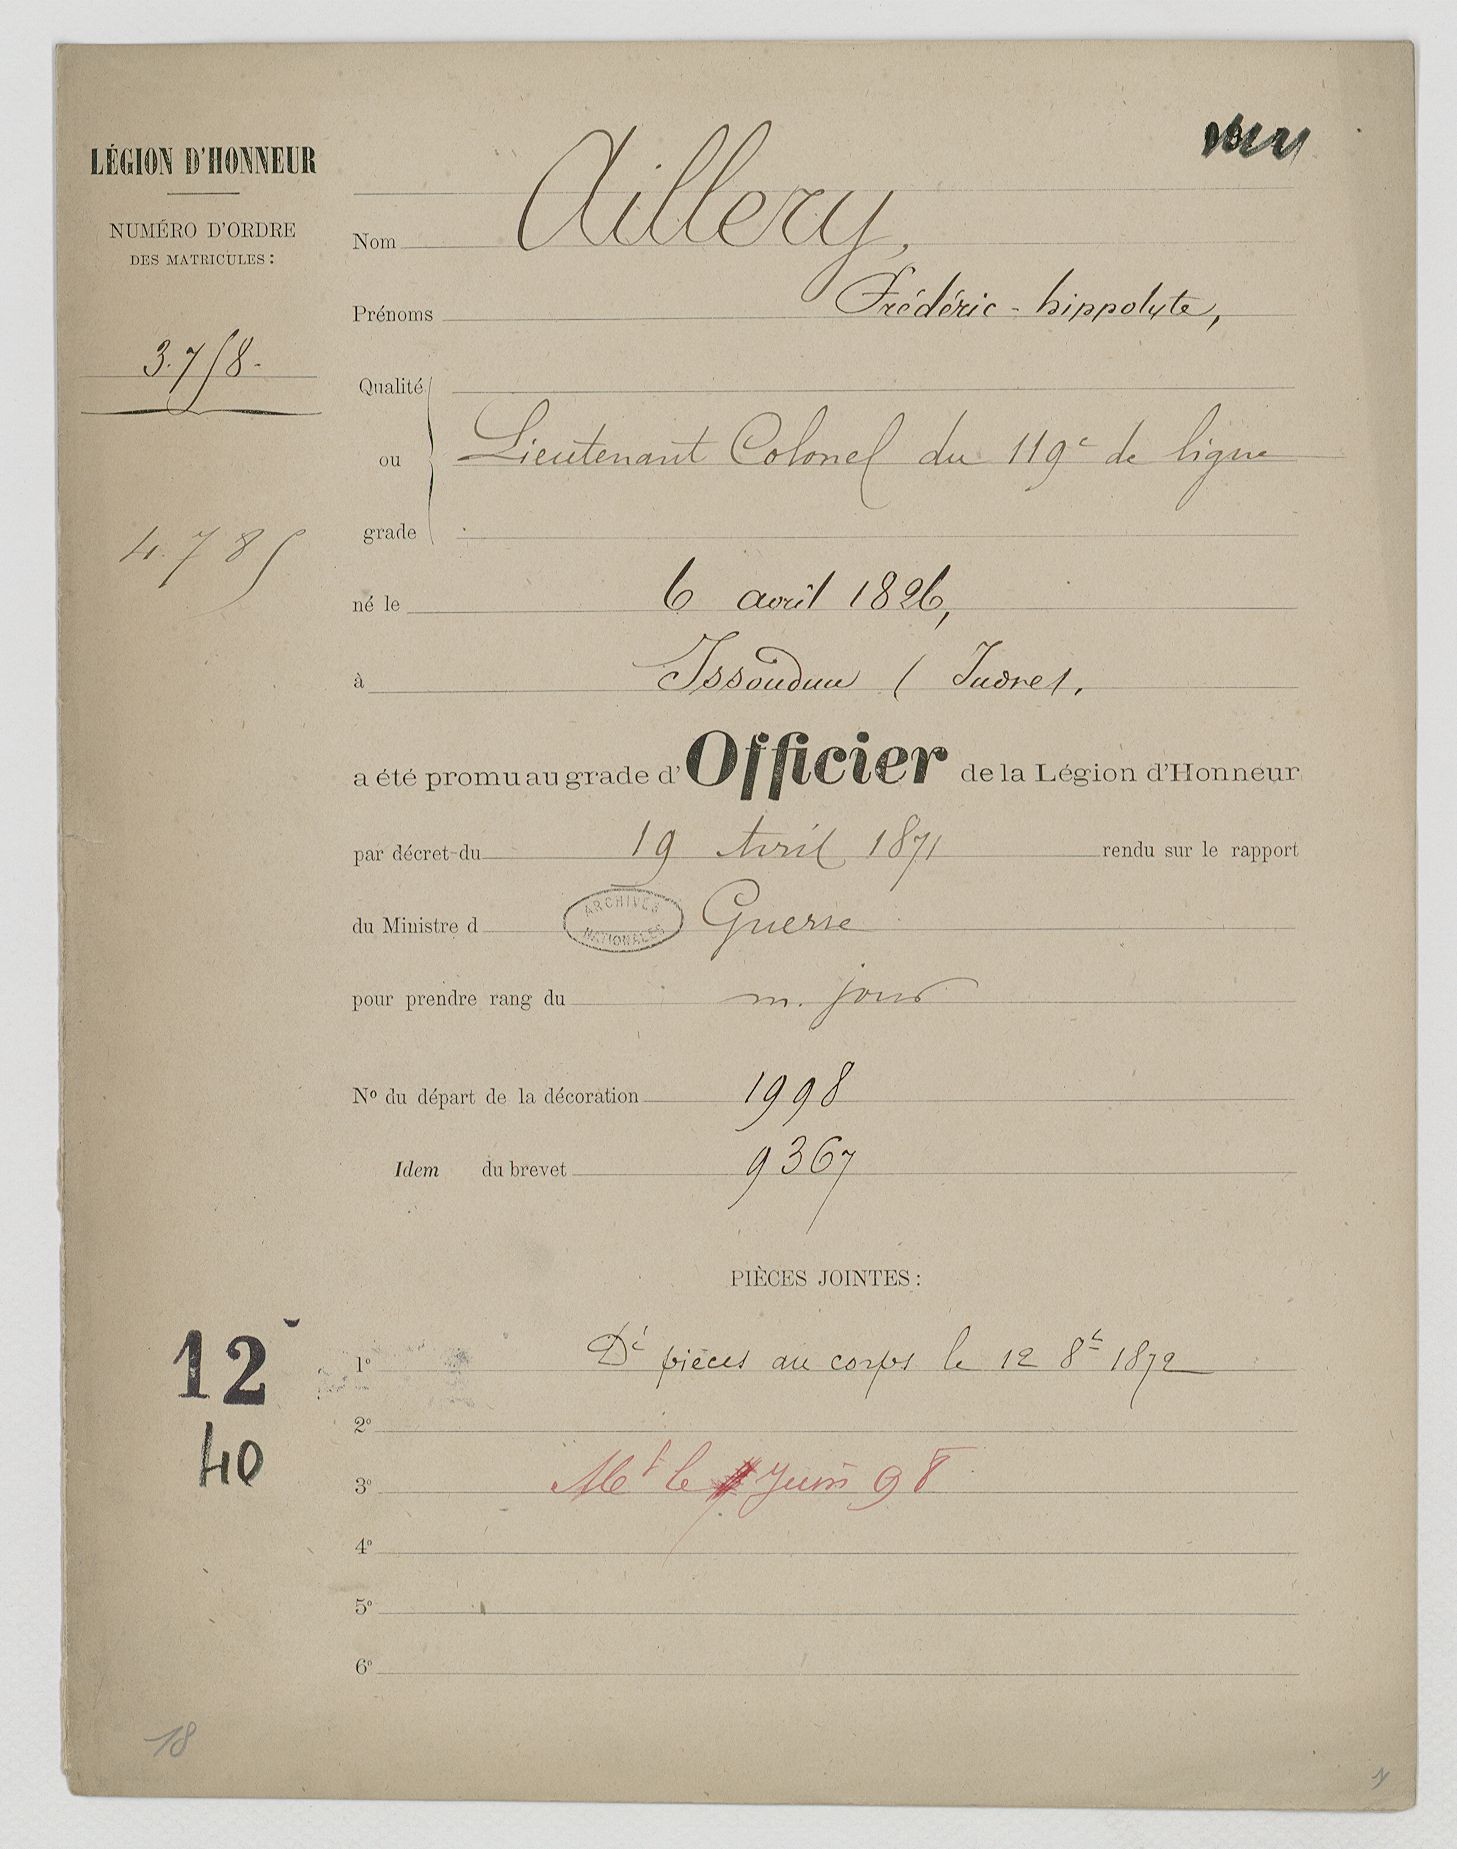 LÉGION D'HONNEUR
NUMÉRO D'ORDRE
DES MATRICULES :
3.758.
4.785
Nom Aillery,
Prénoms Frédéric-hippolyte,
Qualité
ou Lieutenant Colonel du 119e de ligne
grade
né le 6 avril 1826,
à Issoudun (Indre).
a été promu au grade d'Officier de la Légion d'Honneur
par décret du 19 Avril 1871 rendu sur le rapport
du Ministre d Guerre
ARCHIVES NATIONALES
pour prendre rang du m. jour
No du départ de la décoration 1998
Idem du brevet 9367
PIÈCES JOINTES :
12
40
1° Dé pièces au corps le 12 8e 1872
2°
3° Mt le 7 Juin 98
4°
5°
6°
18